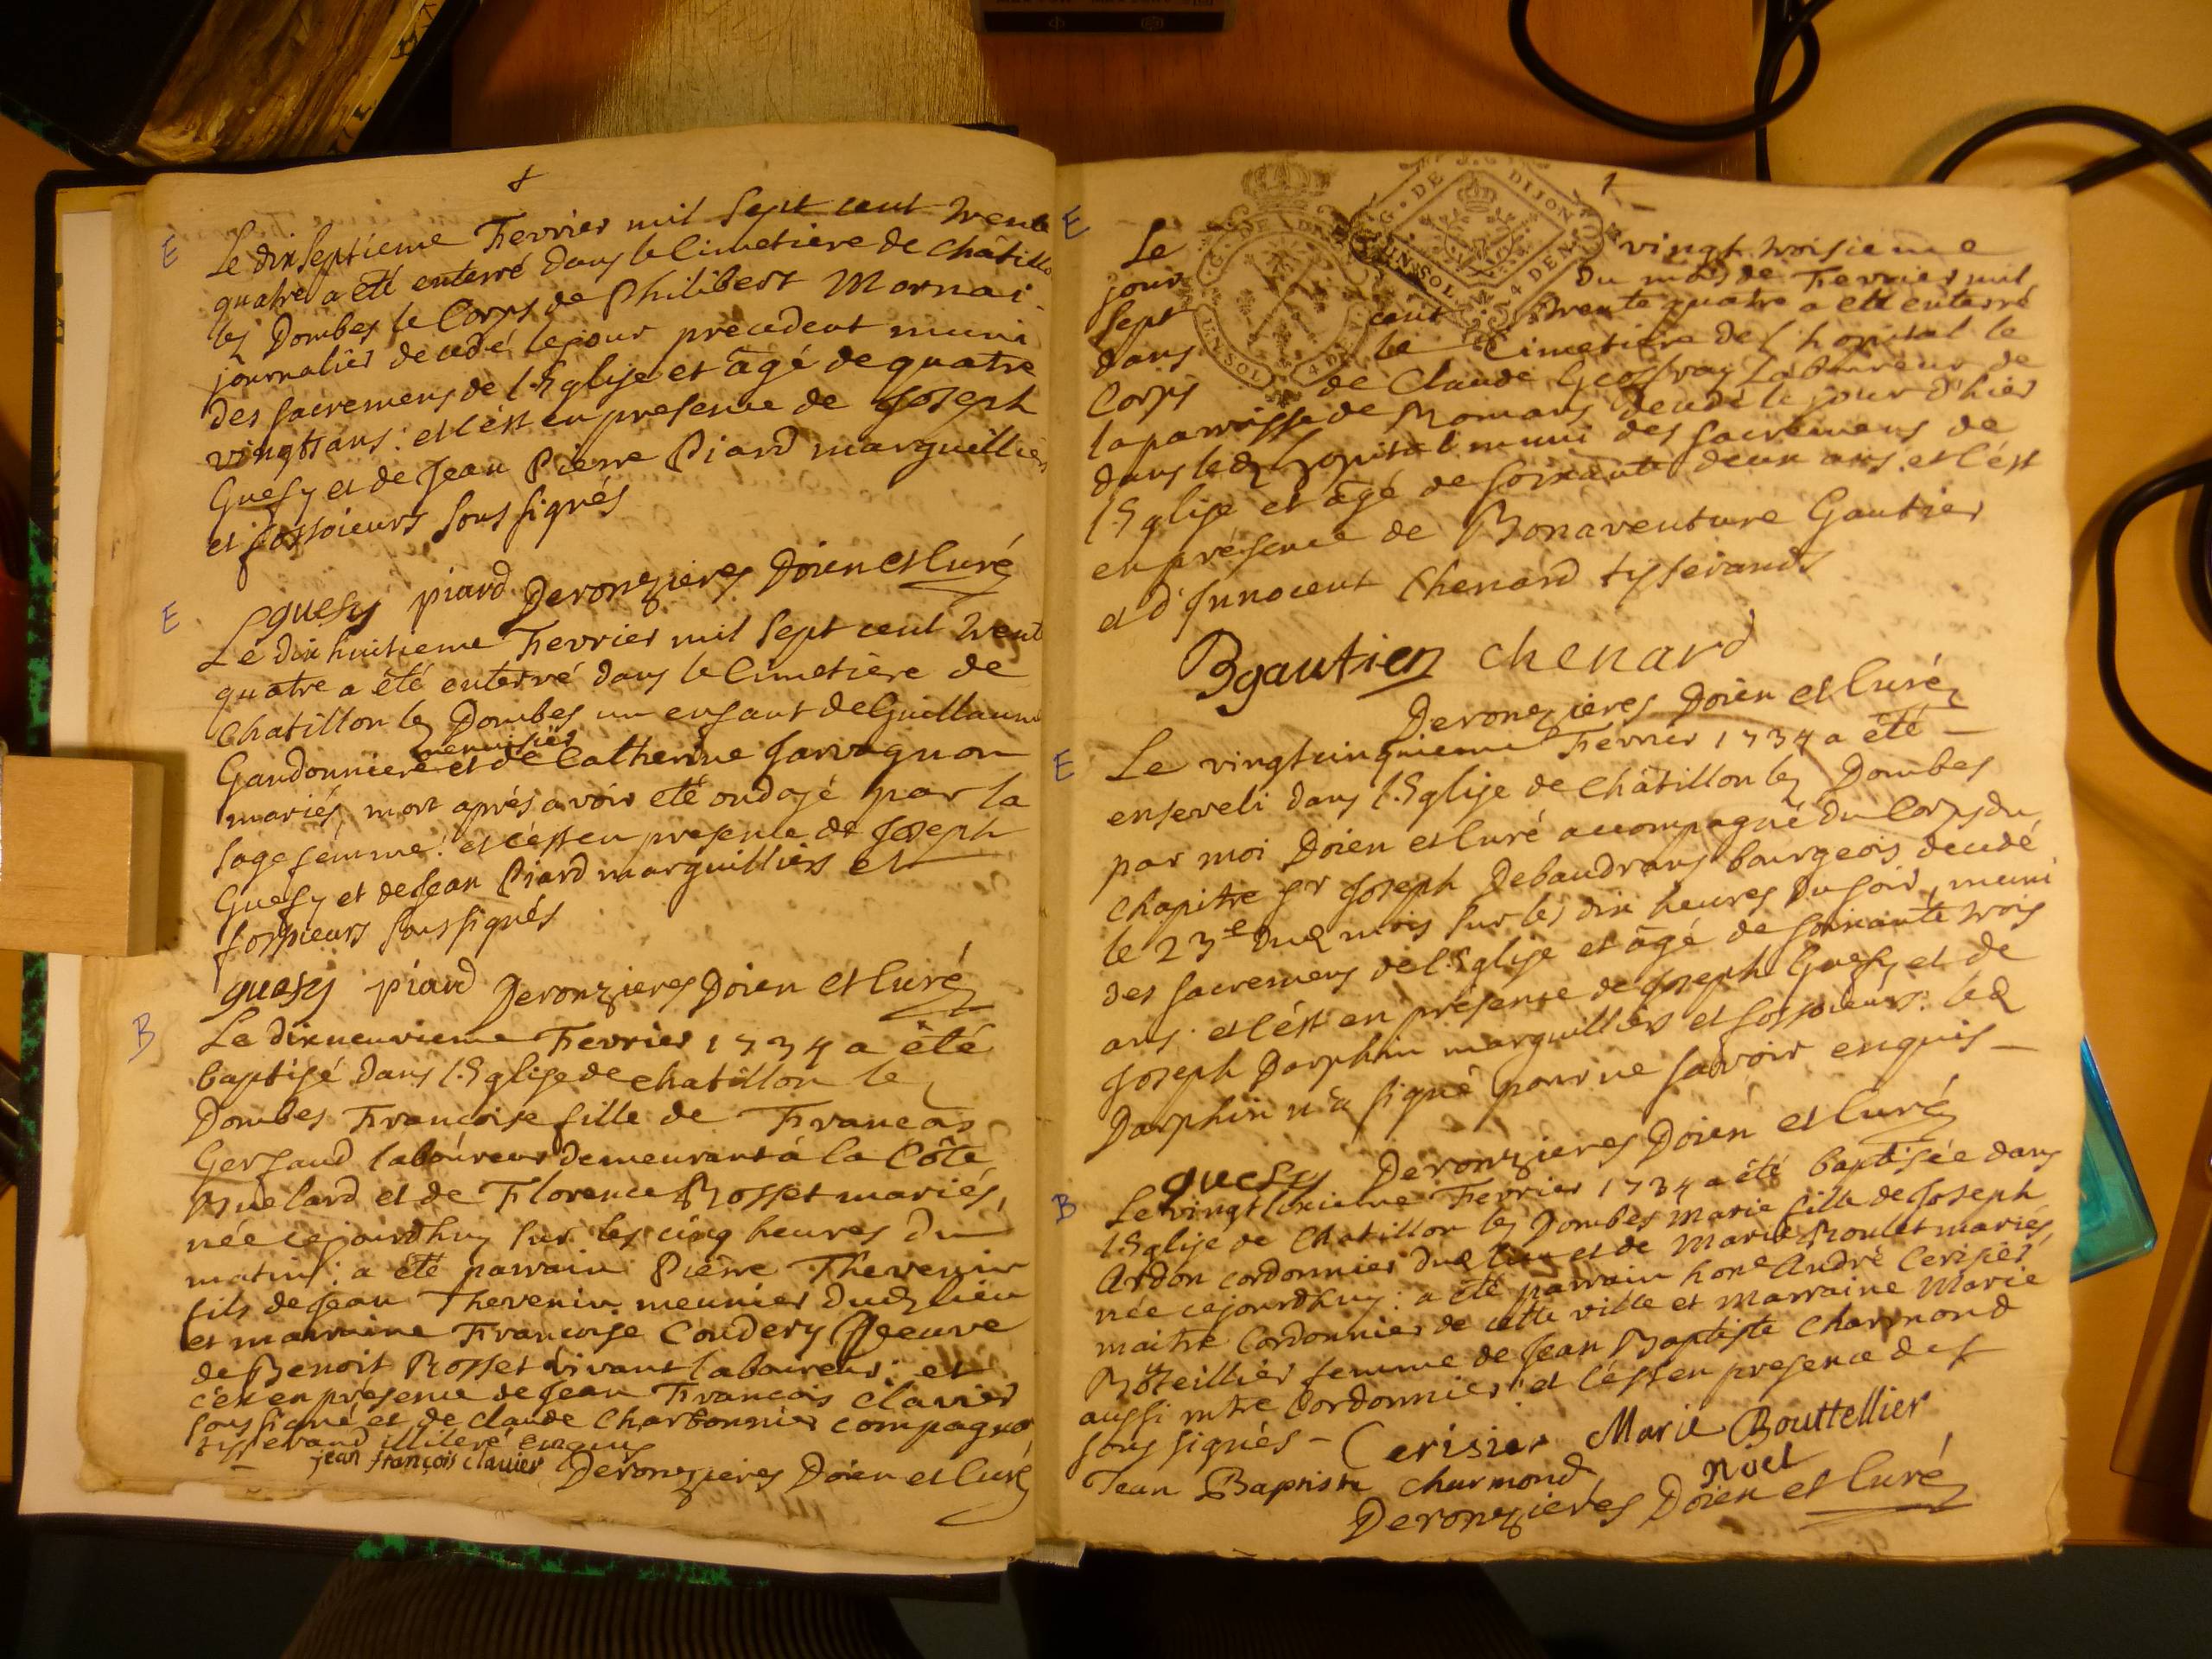 E
Le dixseptieme Fevrier mil sept cent trente
quatre a été enterré dans le Cimetiere de Châtillo
les Dombes le Corps de Philibert Mornai
journalier decedé le jour precedent muni
des sacremens de l'Eglise et âgé de quatre
vingts ans: et c'est en presence de Joseph
Guesy et de Jean Pierre Piard marguilliers
et fossoieurs soussignés
guesy piard Deronzieres Doien et Curé
E
Le dix huitieme Fevrier mil sept cent trent
quatre a été enterré dans le Cimetière de
Chatillon les Dombes un enfant de Guillaume
menuisier
Gandonniere et de Catherine Jarvagnon
mariés, mort après avoir été ondoyé par la
sage femme: et c'est en presence de Joseph
Guesy et de Jean Piard marguilliers et
fossoieurs soussignés
guesy piard Deronzieres Doien et Curé
B
Le dixneuvieme Fevrier 1734 a été
baptisé dans l'Eglise de chatillon les
Dombes Francoise fille de Francois
Gersaud laboureur demeurant à la Côte
Muelard et de Florence Rosset mariés,
née cejourdhuy sur les cinq heures du
matin: a été parrain Pierre Thevenin
fils de Jean Thevenin meunier dud lieu
et marraine Francoise Coudery veuve
de Benoit Rosset vivant laboureur: et
c'est en présence de Jean Francois Clavier
soussigné et de Claude Charbonnier compagno
tisserand illiteré enquis
jean françois clavier Deronzieres Doien et Curé
G. DE DIJON
UN SOL 4 DEN
E
Le vingt troisieme
jour du mois de Fevrier mil
sept cent trente quatre a été enterré
dans le Cimetière de l'hopital le
Corps de Claude Geoffray Laboureur de
la parroisse de Romans decedé le jour d'hier
dans led hopital muni des sacremens de
l'Eglise et âgé de soixante deux ans: et c'est
en présence de Bonaventure Gautier
et d'Innocent Chenard tisserands
Bgautier chenard
Deronzieres Doien et Curé
E
Le vingtcinquieme Fevrier 1734 a été
enseveli dans l'Eglise de Châtillon les Dombes
par moi Doien et Curé accompagné du Corps du
Chapitre sr Joseph Debaudrand bourgeois decedé
le 23e dud mois sur les dix heures du soir, muni
des sacremens de l'Eglise et âgé de soixante trois
ans: et c'est en présence de Joseph Guesy et de
Joseph Darphin marguilliers et fossoieurs: led
Darphin n'a signé pour ne savoir enquis
guesy Deronzieres Doien et Curé
B
Le vingt sixieme Fevrier 1734 a été baptisée dans
l'Eglise de Chatillon les Dombes Marie fille de Joseph
Ardon cordonnier dud lieu et de Marie Roulet mariés,
née cejourdhuy: a été parrain hone André Cerisier
maitre Cordonnier de cette ville et marraine Marie
Boteillier femme de Jean Baptiste Charmond
aussi mtre Cordonnier: et c'est en presence des
soussignés - Cerisier Marie Bouttellier
Jean Baptiste Charmond noel
Deronzieres Doien et Curé